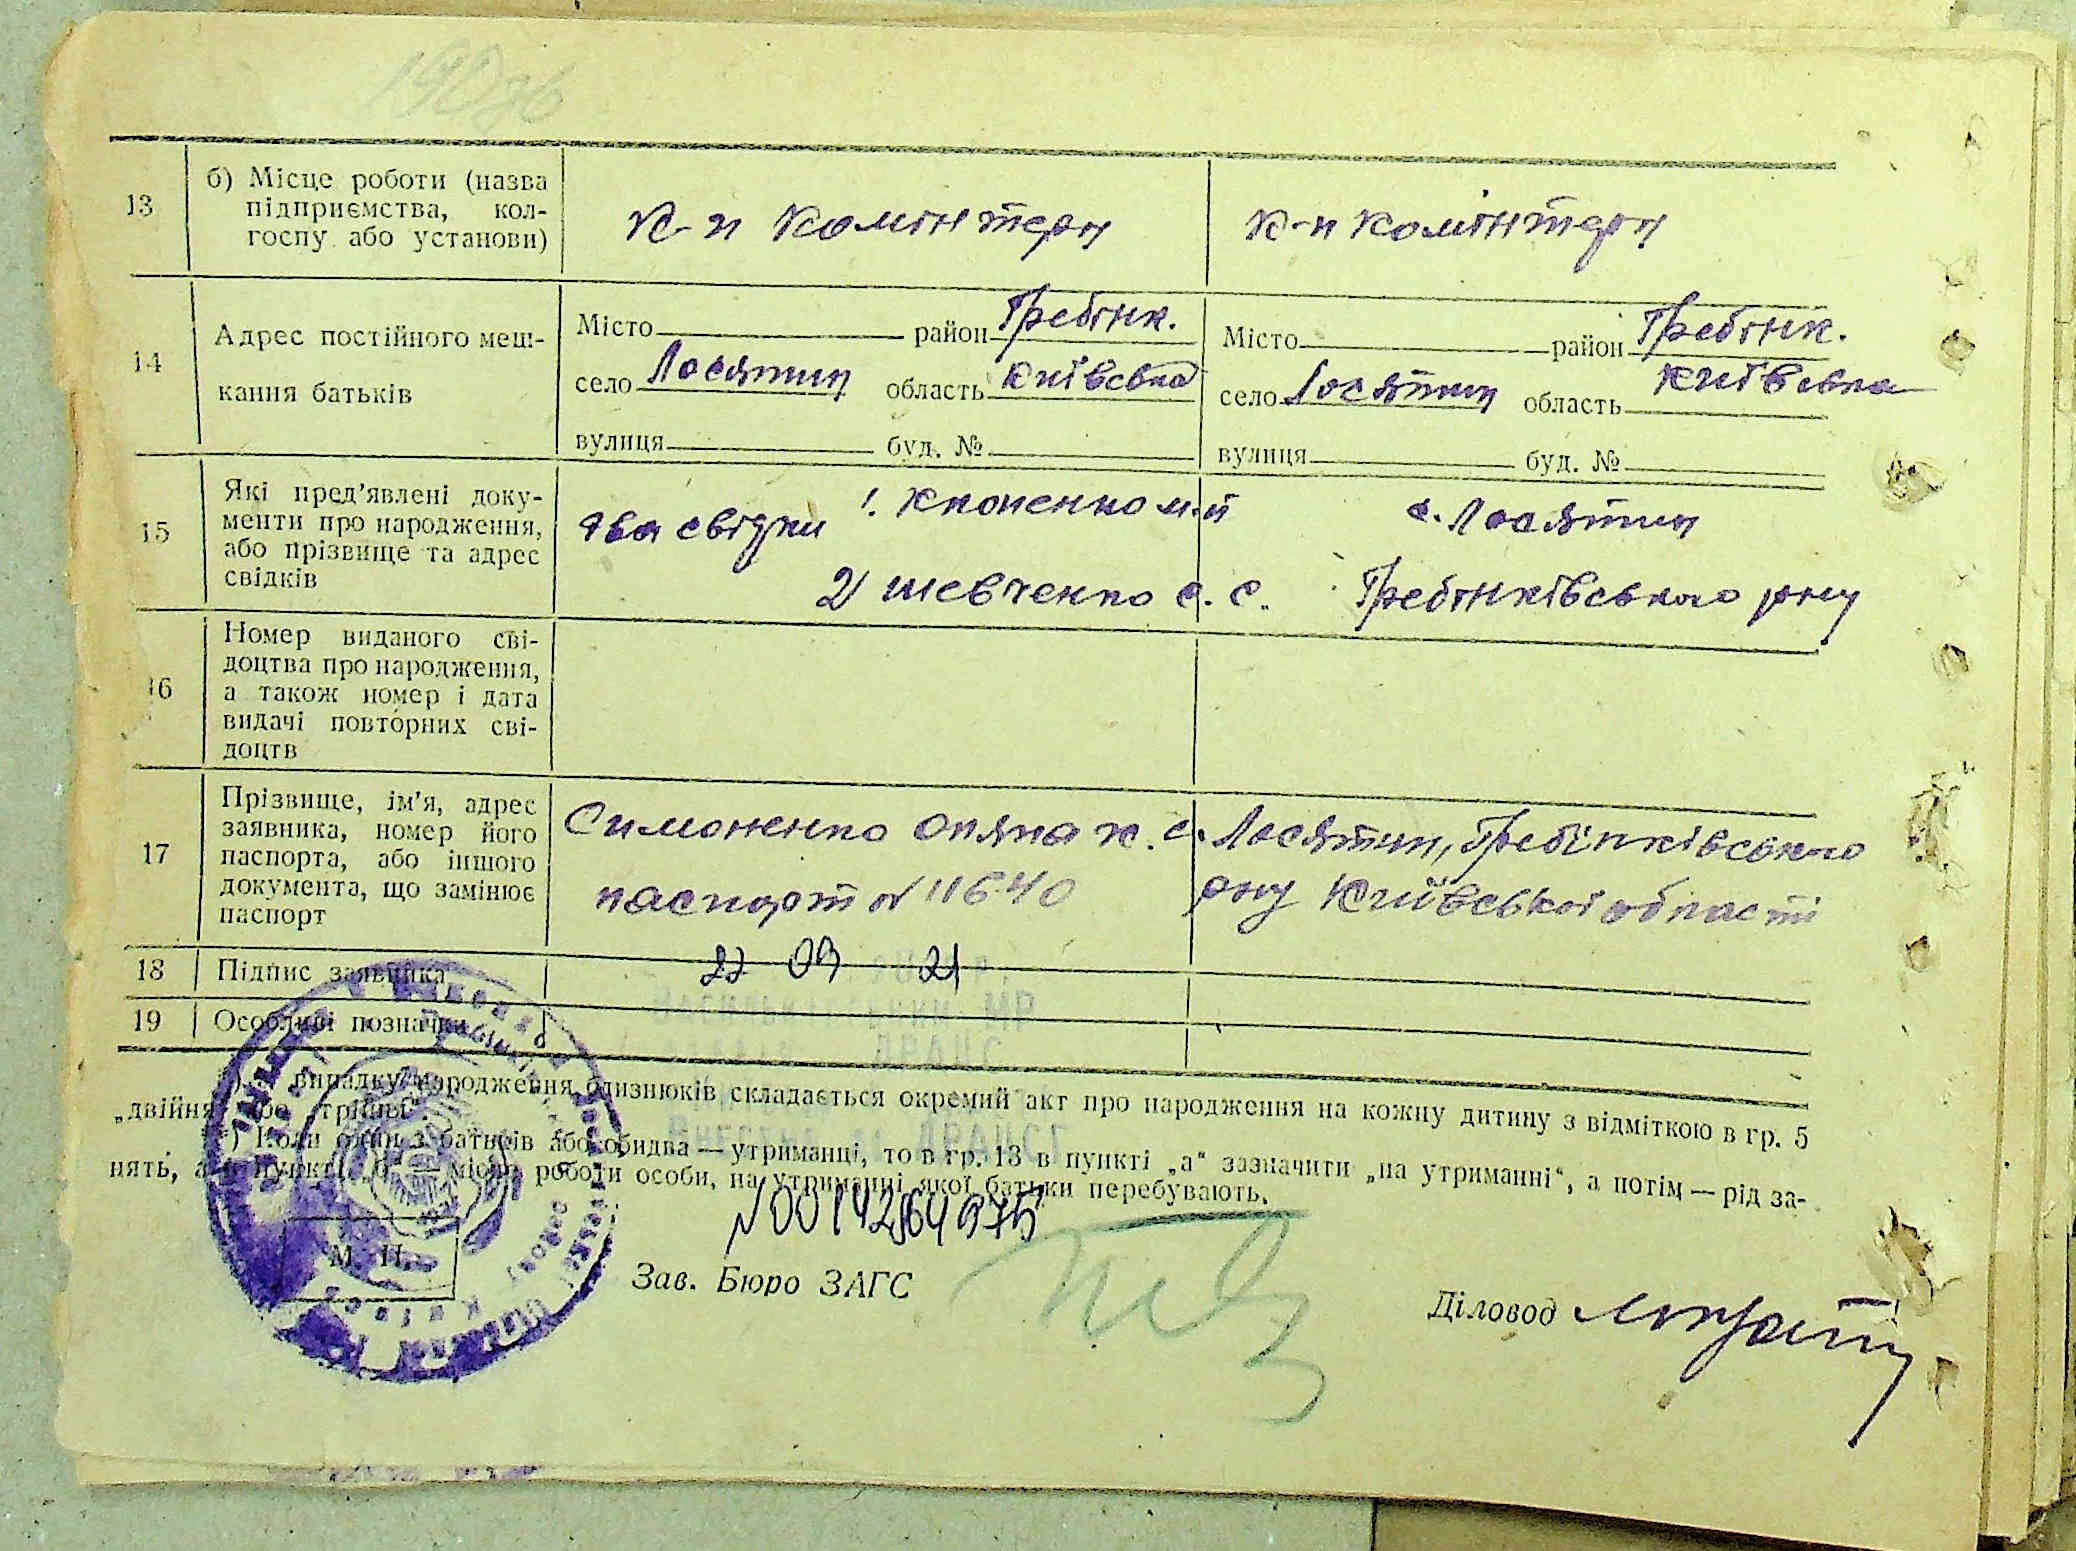 13
б) Місце роботи (назва
підприємства, кол-
госпу або установи)
к-п Комінтерн
к-п Комінтерн
14
Адрес постійного меш-
кання батьків
Місто район Гребінк.
село Лосятин область Київська
вулиця буд. №
Місто район Гребінк.
село Лосятин область Київська
вулиця буд. №
15
Які пред'явлені доку-
менти про народження,
або прізвище та адрес
свідків
два свідки
1. Кононенко м. й
2) Шевченко с. с.
с. Лосятин
Гребінківського р-ну
16
Номер виданого сві-
доцтва про народження,
а також номер і дата
видачі повторних сві-
доцтв
17
Прізвище, ім'я, адрес
заявника, номер його
паспорта, або іншого
документа, що замінює
паспорт
Симоненко к. с. Лосятин, Гребінківського
паспорт № 11640 р-ну Київської області
18
Підпис заявника
27 09 21
19
Особливі позначки
МР
ДРАЦС
випадку народження близнюків складається окремий акт про народження на кожну дитину з відміткою в гр. 5
„двійня" або „трійня".
) Коли один з батьків або обидва — утриманці, то в гр. 13 в пункті „а" зазначити „на утриманні", а потім — рід за-
нять, а в пункті „б" — місце роботи особи, на утриманні якої батьки перебувають.
ДРАЦСГ
№00142164975
М. П.
Зав. Бюро ЗАГС
Діловод